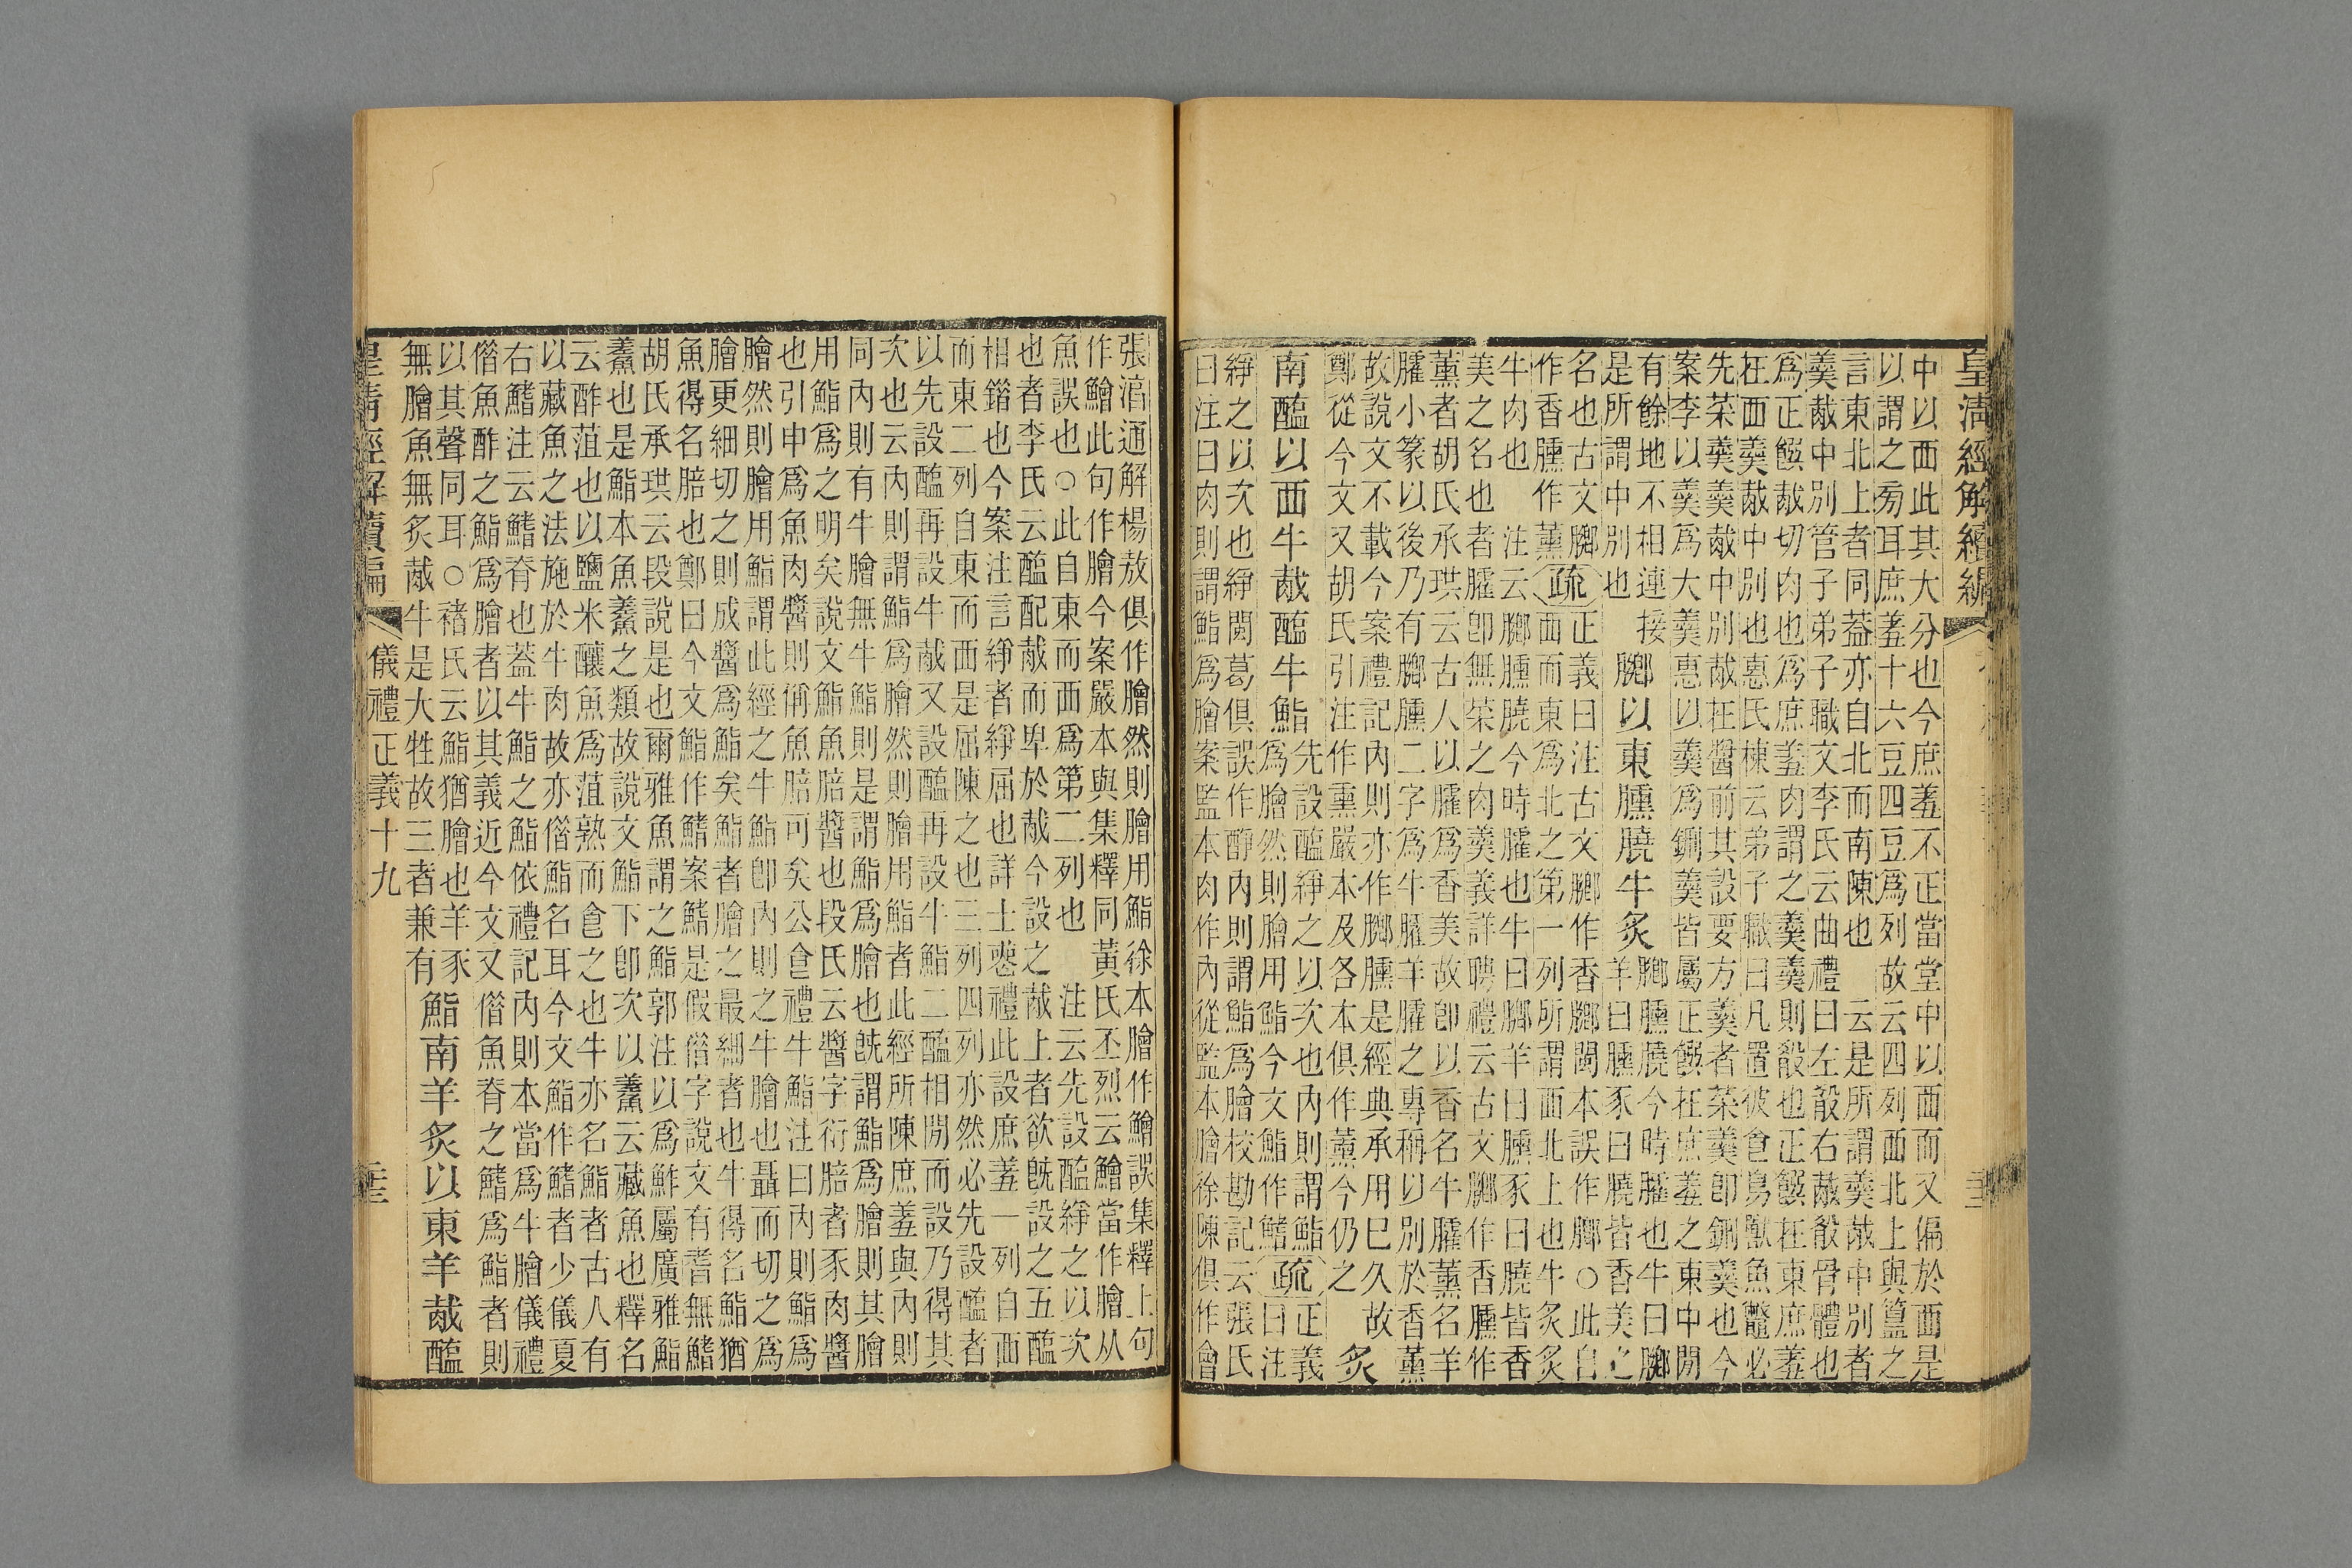 皇清經解續編
中以西此其大分也今庶羞不正當堂中以西而又偏於西是
以謂之旁耳庶羞十六豆四豆爲列故云四列西北上與簋之
言東北上者同葢亦自北而南陳也 云是所謂羹胾中別者
羹胾中別管子弟子職文李氏云曲禮曰左殽右胾殽骨體也
爲正饌胾切肉也爲庶羞肉謂之羹羹則殽也正饌在東庶羞
在西羹胾中別也惠氏棟云弟子職曰凡置彼食鳥獸魚鼈必
先菜羹羹胾中別胾在醬前其設要方羹者菜羹卽鉶羹也今
案李以羹爲大羹惠以羹爲鉶羹皆屬正饌在庶羞之東中閒
有餘地不相連接
是所謂中別也
膷以東臐膮牛炙
膷臐膮今時臛也牛曰膷
羊曰臐豕曰膮皆香美之
名也古文膷
作香臐作薰
疏
正義曰注古文膷作香膷閩本誤作膷○此自
西而東爲北之第一列所謂西北上也牛炙炙
牛肉也 注云膷臐膮今時臛也牛曰膷羊曰臐豕曰膮皆香
美之名也者臛卽無菜之肉羹義詳聘禮云古文膷作香臐作
薰者胡氏承珙云古人以臛爲香美故卽以香名牛臛薰名羊
臛小篆以後乃有膷臐二字爲牛臛羊臛之專稱以別於香薰
故說文不載今案禮記內則亦作膷臐是經典承用已久故
鄭從今文又胡氏引注作熏嚴本及各本俱作薰今仍之
炙
南醢以西牛胾醢牛鮨
先設醢綪之以次也內則謂鮨
爲膾然則膾用鮨今文鮨作鰭
疏
正義
曰注
綪之以次也綪閩葛俱誤作醇內則謂鮨爲膾校勘記云張氏
曰注曰肉則謂鮨爲膾案監本肉作內從監本膾徐陳俱作會
張淳通解楊敖俱作膾然則膾用鮨徐本膾作鱠誤集釋上句
作鱠此句作膾今案嚴本與集釋同黃氏丕烈云鱠當作膾从
魚誤也○此自東而西爲第二列也 注云先設醢綪之以次
也者李氏云醢配胾而卑於胾今設之胾上者欲旣設之五醢
相錯也今案注言綪者綪屈也詳士喪禮此設庶羞一列自西
而東二列自東而西是屈陳之也三列四列亦然必先設醢者
以先設醢再設牛胾又設醢再設牛鮨二醢相閒而設乃得其
次也云內則謂鮨爲膾然則膾用鮨者此經所陳庶羞與內則
同內則有牛膾無牛鮨則是謂鮨爲膾也旣謂鮨爲膾則其膾
用鮨爲之明矣說文鮨魚䐹醬也段氏云醬字衍䐹者豕肉醬
也引申爲魚肉醬則偁魚䐹可矣公食禮牛鮨注曰內則鮨爲
膾然則膾用鮨謂此經之牛鮨卽內則之牛膾也聶而切之爲
膾更細切之則成醬爲鮨矣鮨者膾之最細者也牛得名鮨猶
魚得名䐹也鄭曰今文鮨作鰭案鰭是假借字說文有耆無鰭
胡氏承珙云段說是也爾雅魚謂之鮨郭注以爲鮓屬廣雅鮨
鮺也是鮨本魚鮺之類故說文鮨下卽次以鮺云藏魚也釋名
云酢菹也以鹽米釀魚爲菹熟而食之也牛亦名鮨者古人有
以藏魚之法施於牛肉故亦借鮨名耳今文鮨作鰭者少儀夏
右鰭注云鰭脊也葢牛鮨之鮨依禮記內則本當爲牛膾儀禮
借魚酢之鮨爲膾者以其義近今文又借魚脊之鰭爲鮨者則
以其聲同耳○褚氏云鮨猶膾也羊豕
無膾魚無炙胾牛是大牲故三者兼有
鮨南羊炙以東羊胾醢
皇清經解續編
儀禮正義十九